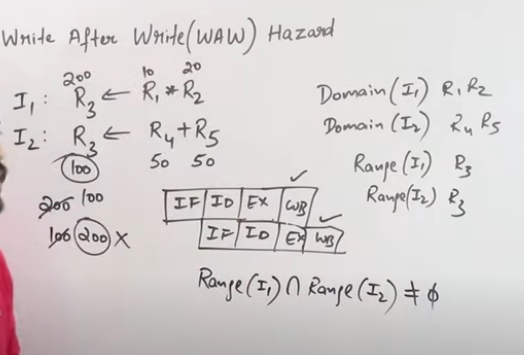 Write After Write(WAW) Hazard
200 10 20
I₁: R₃ ← R₁ * R₂
I₂: R₃ ← R₄ + R₅
100 50 50
200 100
100 200 ×
IF ID EX WB ✓
IF ID EX WB ✓
Domain(I₁) R₁ R₂
Domain(I₂) R₄ R₅
Range(I₁) R₃
Range(I₂) R₃
Range(I₁) ∩ Range(I₂) ≠ ϕ